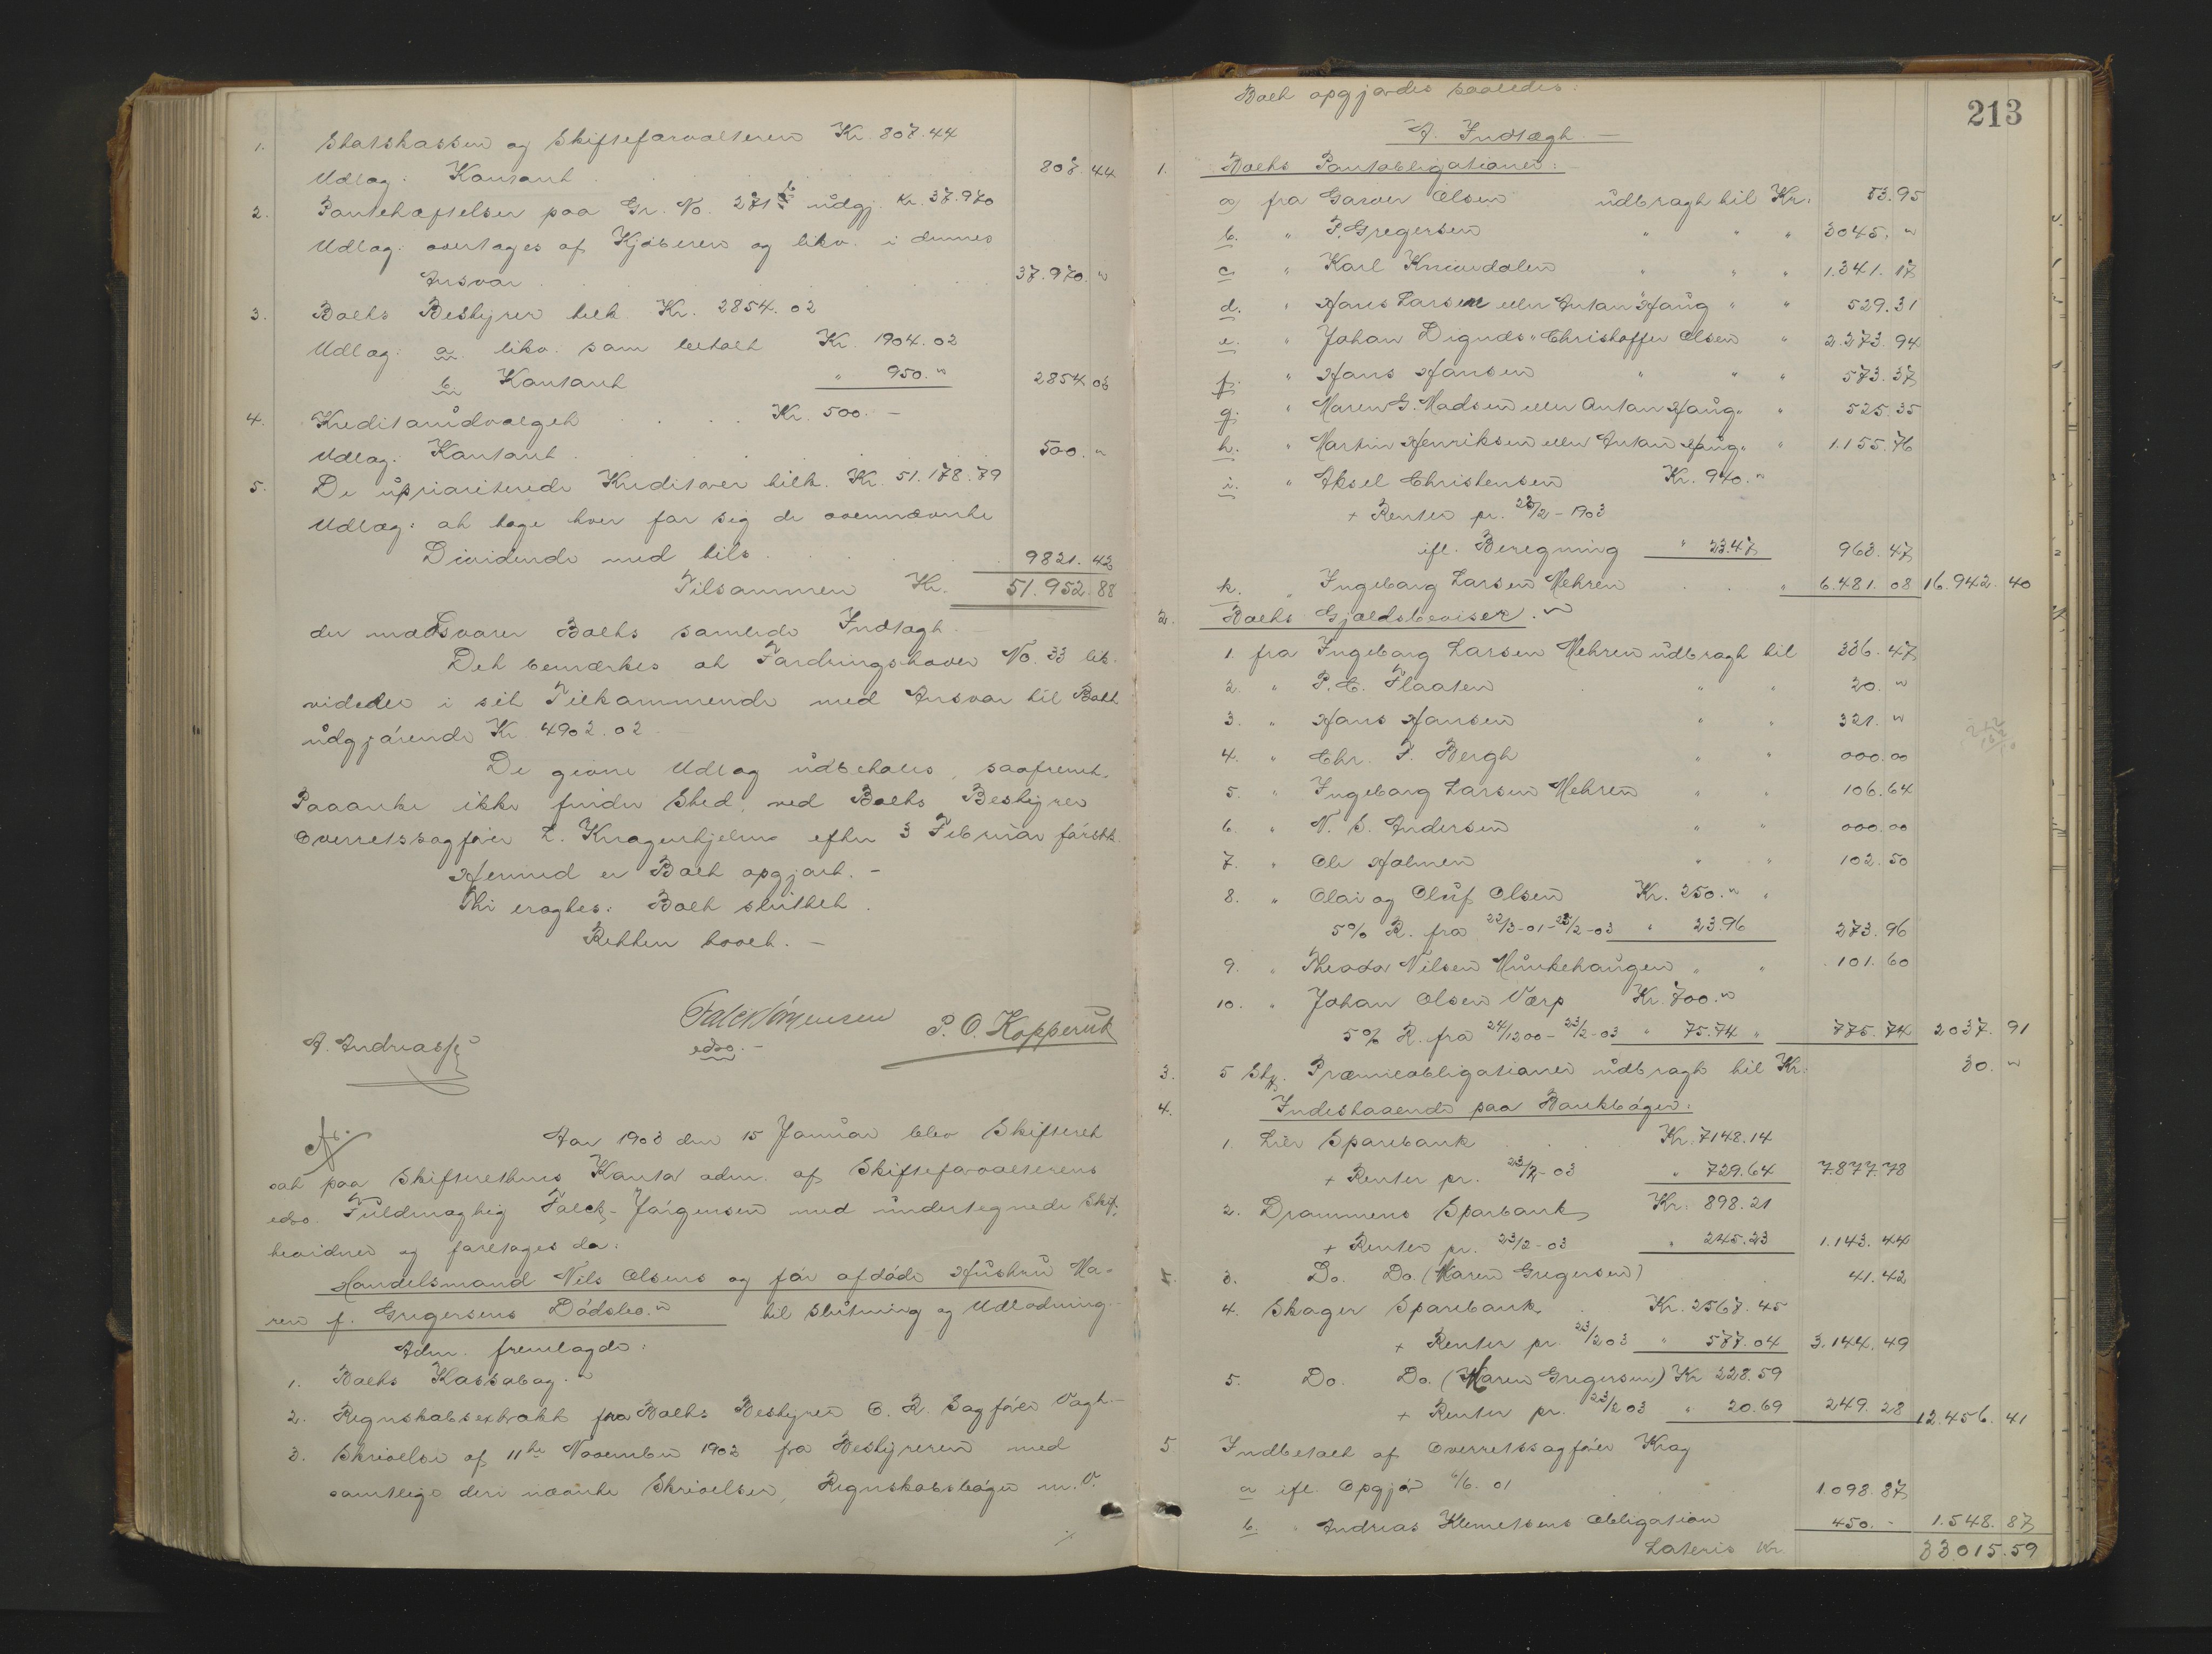 1. Statskassen og Skifteforvalteren Kr. 807.44
Udlæg: Kontant . . . 807.44
2. Pantehæftelser paa Gr. No. 271 b udgj. Kr. 37.970
Udlæg: overtages af Kjøberen og likv. i dennes
Ansvar . . . 37.970. "
3. Boets Bestyrer tilk. Kr. 2854.02
Udlæg: a. likv. som betalt Kr. 1904.02
b. Kontant " 950. " 2854 02
4. Kreditorudvalget . . . Kr. 500. -
Udlæg: Kontant . . . 500. "
5. De uprioriterede Kreditorer tilk. Kr. 51.178.79
Udlæg: at tage hver for sig de ovennævnte
Dividende med tils. . . . 9821.42
Tilsammen Kr. 51.952.88
der modsvarer Boets samlede Indtægt. -
Det bemærkes at Fordringshaver No. 33 lik-
videdes i sit Tilkommende med Ansvar til Boet
udgjørende Kr. 4902.02
De givne Udlæg udbetales, saafremt
Paaanke ikke finder Sted, ved Boets Bestyrer
Overretssagfører L. Kragenhjelm efter 3 Februar førstk.
Hermed er Boet opgjort. -
Thi eragtes: Boet sluttet.
Retten hævet. -
Falck Jørgensen
edsv. -
P. O. Kopperud
A. Andreass.
Aar 1903 den 15 Januar blev Skifteret
sat paa Skifterettens Kontor adm. af Skifteforvalterens
edsv. Fuldmægtig Falck-Jørgensen med undertegnede Skif-
tevidner og foretoges da:
Handelsmand Nils Olsens og før afdøde Hustru Ma-
ren f. Gregersens Dødsbo. " til Slutning og Udlodning. -
Adm. fremlagde:
1. Boets Kassabog. "
2. Regnskabsextrakt fra Boets Bestyrer O. R. Sagfører Vogt. -
3. Skrivelse af 11te November 1902 fra Bestyreren med
samtlige deri nævnte Skrivelser, Regnskabsbøger m. V.
213
Boet opgjordes saaledes:
A. Indtægt. -
1. Boets Pantobligationer:
a) fra Garver Olsen udbragt til Kr. 53.95
b. " P. Gregersen " " " 3045. "
c. " Karl Knivedalen " " " 1.341.17
d. " Hans Larsen eller Anton Haug " " 529.31
e. " Johan Digruds " Christoffer Olsen " 2.273.94
f. " Hans Hansen " " " 573.37
g. " Maren G. Madsen eller Anton Haug " " 525.35
h. " Martin Henriksen eller Anton Haug " " 1.155.76
i. " Aksel Christensen Kr. 940. "
+ Renter pr. 23/2 - 1903
ifl. Beregning " 23.47 963.47
k. " Ingeborg Larsen Mehren . . " 6.481.08 16.942.40
2. Boets Gjældsbeviser. "
1. fra Ingeborg Larsen Mehren udbragt til 336.47
2. " P. C. Flaaten " " 20. "
3. " Hans Hansen " " 321. "
4. " Chr. F. Bergh " " 000.00
5. " Ingeborg Larsen Mehren " " 106.64
6. " N. S. Andersen " " 000.00
7. " Ole Holmen " " 102.50
8. " Olai og Oluf Olsen Kr. 250. " "
5% R. fra 22/3-01 - 23/2-03 " 23.96 273.96
9. " Theodor Nilsen Munkehaugen " " 101.60
10. " Johan Olsen Værp Kr. 700. "
5% R. fra 24/12 00 - 23/2-03 " 75.74 " 775.74 2037.91
3. 5 Stk. Præmieobligationer udbragt til Kr. 30. "
4. Indestaaende paa Bankbøger:
1. Lier Sparebank . . . Kr. 7148.14
+ Renter pr. 23/2-03 " 729.64 7.877.78
2. Drammens Sparebank Kr. 898.21
+ Renter pr. 23/2-03 " 245.23 1.143.44
3. Do. Do. (Maren Gregersen) . 41.42
4. Skoger Sparebank . Kr. 2567.45
+ Renter pr. 23/2 03 " 577.04 3.144.49
5. Do. Do. (Maren Gregersen) Kr 228.59
+ Renter pr. 23/2 03 " 20.69 249.28 12.456.41
5 Indbetalt af Overretssagfører Krag
a ifl. Opgjør 6/6. 01 1.098.87
b. " Andreas Klemetsens Obligation 450. - 1.548.87
Lateris Kr. 33015.59